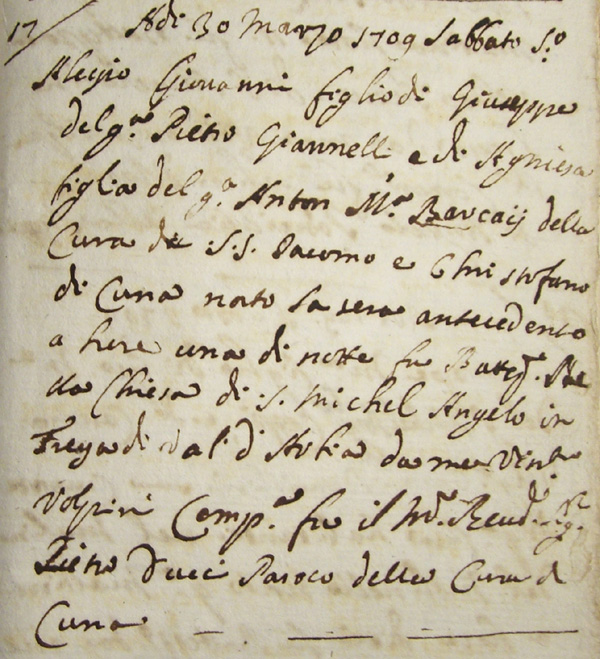 17/ Adi 30 Marzo 1709 Sabbato S.o
Alesio Giovanni figlio di Giuseppe
del q.m Pietro Giannelli e di Agniesa
figlia del q.m Anton M.a Barcaij della
Cura di S.S. Jacomo e Christofano
di Cuna nato la sera antecedente
a hore una di notte fu Battez.o Ne
lla Chiesa di S. Michel Angelo in
di Val d'Arbia da me Vint.o
Volpini Comp.e fu il M.o Reud.o Sig.r
Pietro Duci Paroco della Cura di
Cuna